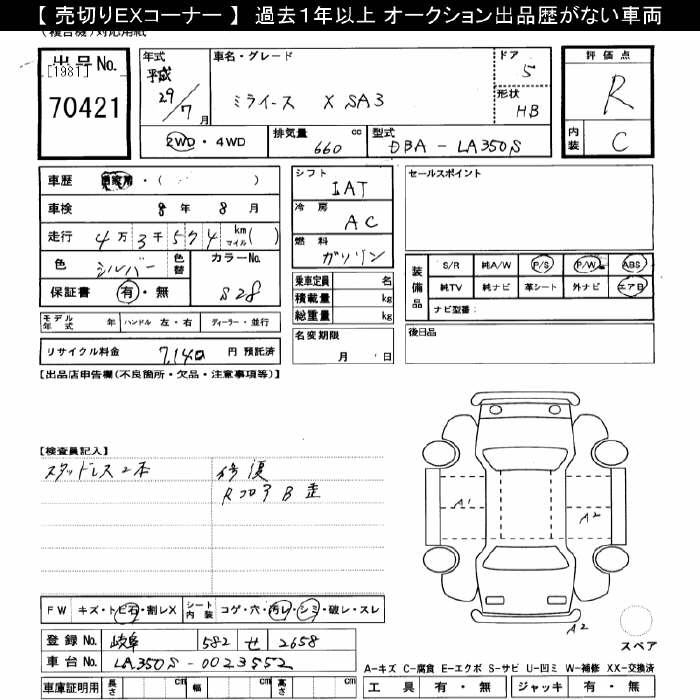 【 売切りEXコーナー 】 過去１年以上 オークション出品歴がない車両
(複合機)対応用紙
出品No.
[1981]
70421
年式
平成
29/7月
車名・グレード
ミライース X SA3
ドア
5
形状
HB
2WD・4WD
排気量 660 cc
型式 DBA - LA350S
評価点
R
内装
C
車歴 自家用・( )
車検 8年 8月
走行 4万3千574 km マイル( )
色 シルバー
色替
カラーNo.
S28
保証書 有・無
モデル年式 年
ハンドル 左・右
ディーラー・並行
リサイクル料金 7,140 円 預託済
シフト
IAT
冷房
AC
燃料
ガソリン
乗車定員 名
積載量 kg
総重量 kg
名変期限
月 日
セールスポイント
装備品
S/R 純A/W P/S P/W ABS
純TV 純ナビ 革シート 外ナビ エアB
ナビ型番:
後日品
【出品店申告欄(不良箇所・欠品・注意事項等)】
【検査員記入】
スタッドレス2本
修復
Rフロア B 歪
A1
A2
A2
スペア
FW キズ・トビ石・割レX
シート内装 コゲ・穴・汚レ・シミ・破レ・スレ
登録No. 岐阜 582 せ 2658
車台No. LA350S-0023552
車庫証明用 長さ cm 幅 cm 高さ cm
A-キズ C-腐食 E-エクボ S-サビ U-凹ミ W-補修 XX-交換済
工具 有・無 ジャッキ 有・無